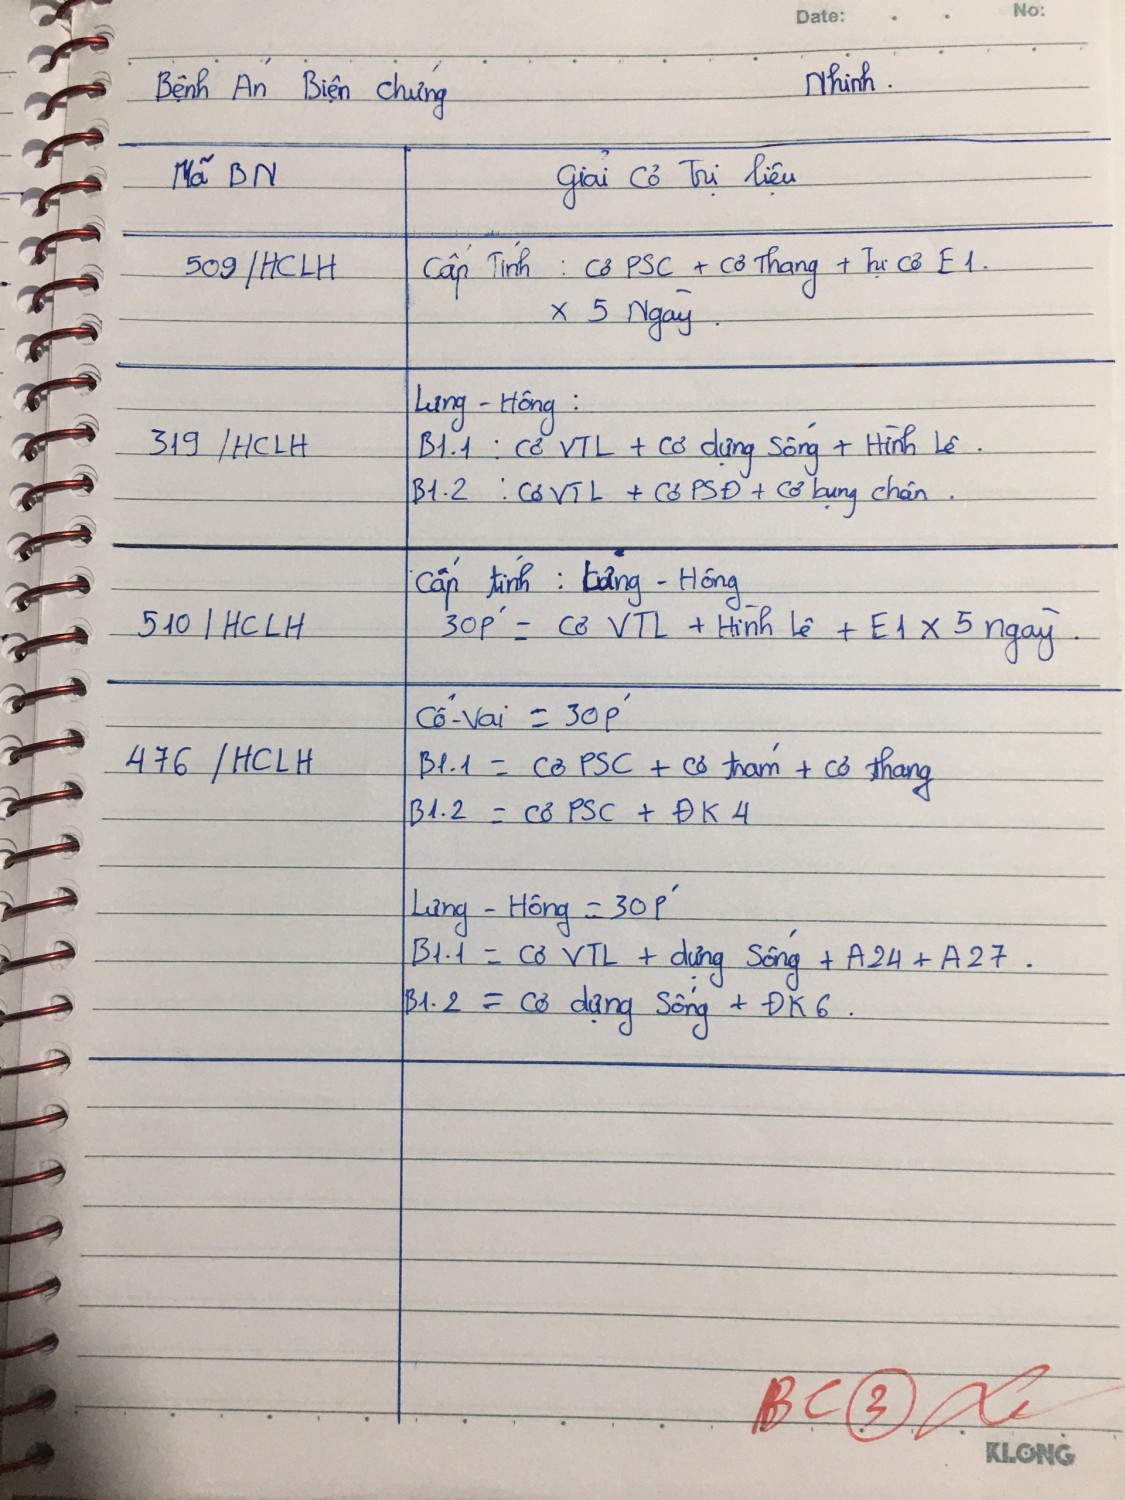 Date: . . No:
Bệnh Án Biện chứng Nhinh.
Mã BN Giải Cơ Trị liệu
509/HCLH Cấp Tính : Cơ PSC + Cơ Thang + Tự Cơ E1.
x 5 Ngày.
Lưng - Hông :
319/HCLH B1.1 : Cơ VTL + Cơ dựng Sống + Hình Lê.
B1.2 : Cơ VTL + Cơ PSĐ + Cơ bụng chân.
Cấp tính : Lưng - Hông
510/HCLH 30P' = Cơ VTL + Hình Lê + E1 x 5 ngày.
Cổ-Vai = 30P'
476/HCLH B1.1 = Cơ PSC + Cơ trám + Cơ thang
B1.2 = Cơ PSC + ĐK4
Lưng - Hông = 30P'
B1.1 = Cơ VTL + dựng Sống + A24 + A27.
B1.2 = Cơ dựng Sống + ĐK6.
BC 3
KLONG